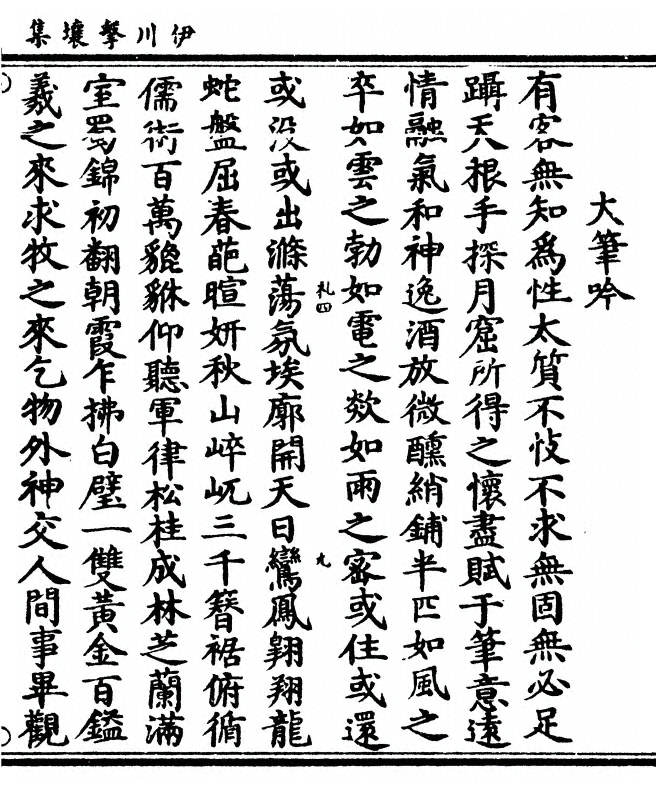 伊川擊壤集
大筆吟
有客無知爲性太質不忮不求無固無必足
躡天根手探月窟所得之懷盡賦于筆意遠
情融氣和神逸酒放微醺綃鋪半匹如風之
卒如雲之勃如電之欻如雨之密或住或還
或沒或出滌蕩氛埃廓開天日鸞鳳翺翔龍
札四
九
蛇盤屈春葩暄妍秋山崪屼三千簪裾俯循
儒術百萬貔貅仰聽軍律松桂成林芝蘭滿
室蜀錦初翻朝霞乍拂白璧一雙黃金百鎰
羲之來求牧之來乞物外神交人間事畢觀